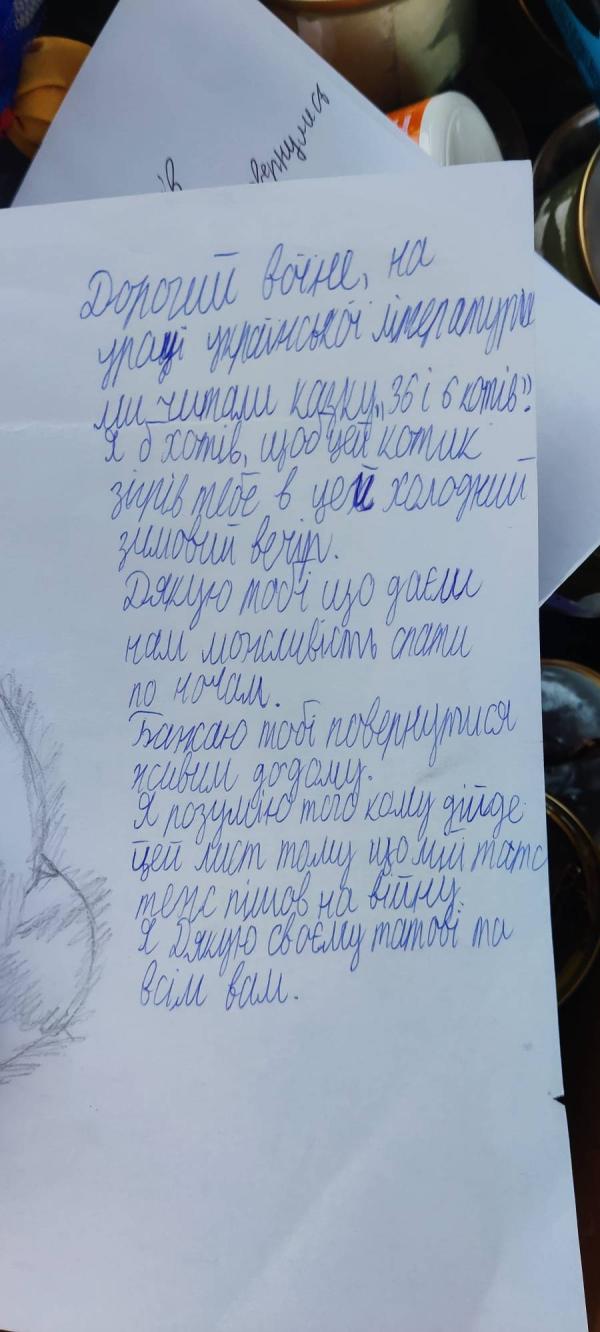 ів
вернулись
Дорогий воїне, на
уроці української літератури
ми читали казку „36 і 6 котів”.
Я б хотів, щоб цей котик
зігрів тебе в цей холодний
зимовий вечір.
Дякую тобі що даєш
нам можливість спати
по ночам.
Бажаю тобі повернутися
живим додому.
Я розумію того кому дійде
цей лист тому що мій тато
теж пішов на війну.
Я Дякую своєму татові та
всім вам.